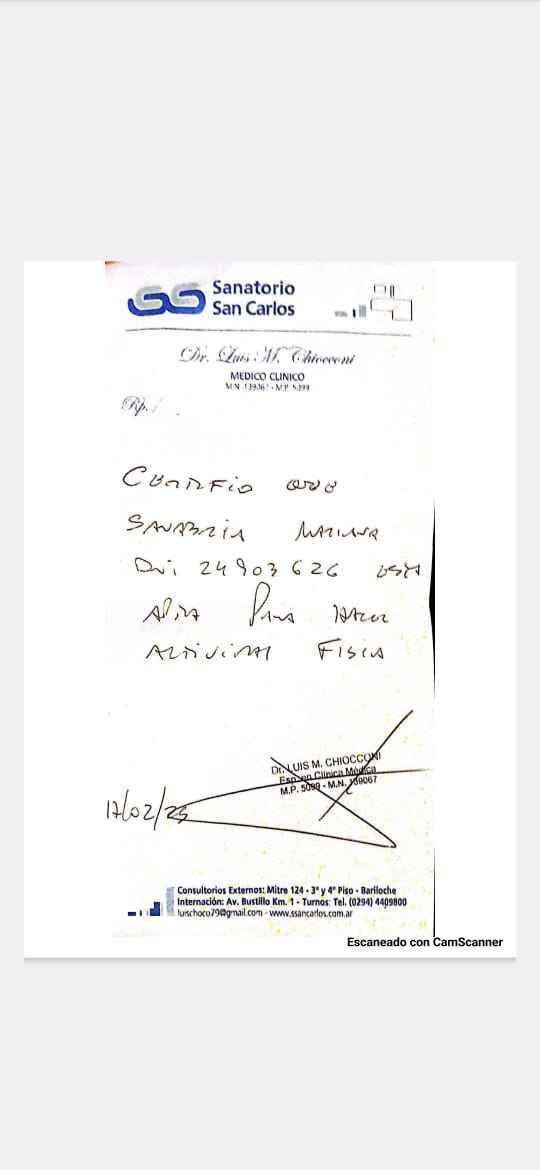 Sanatorio
San Carlos
Dr. Luis M. Chiocconi
MEDICO CLINICO
M.N. 139067 - M.P. 5099
Rp./
Certifico que
Sanabria Mariana
Dni 24903626 está
Apta Para Hacer
Actividad Fisica
Dr. LUIS M. CHIOCCONI
Esp. en Clínica Médica
M.P. 5099 - M.N. 139067
17/02/25
Consultorios Externos: Mitre 124 - 3° y 4° Piso - Bariloche
Internación: Av. Bustillo Km. 1 - Turnos: Tel. (0294) 4409800
luischoco79@gmail.com - www.ssancarlos.com.ar
Escaneado con CamScanner